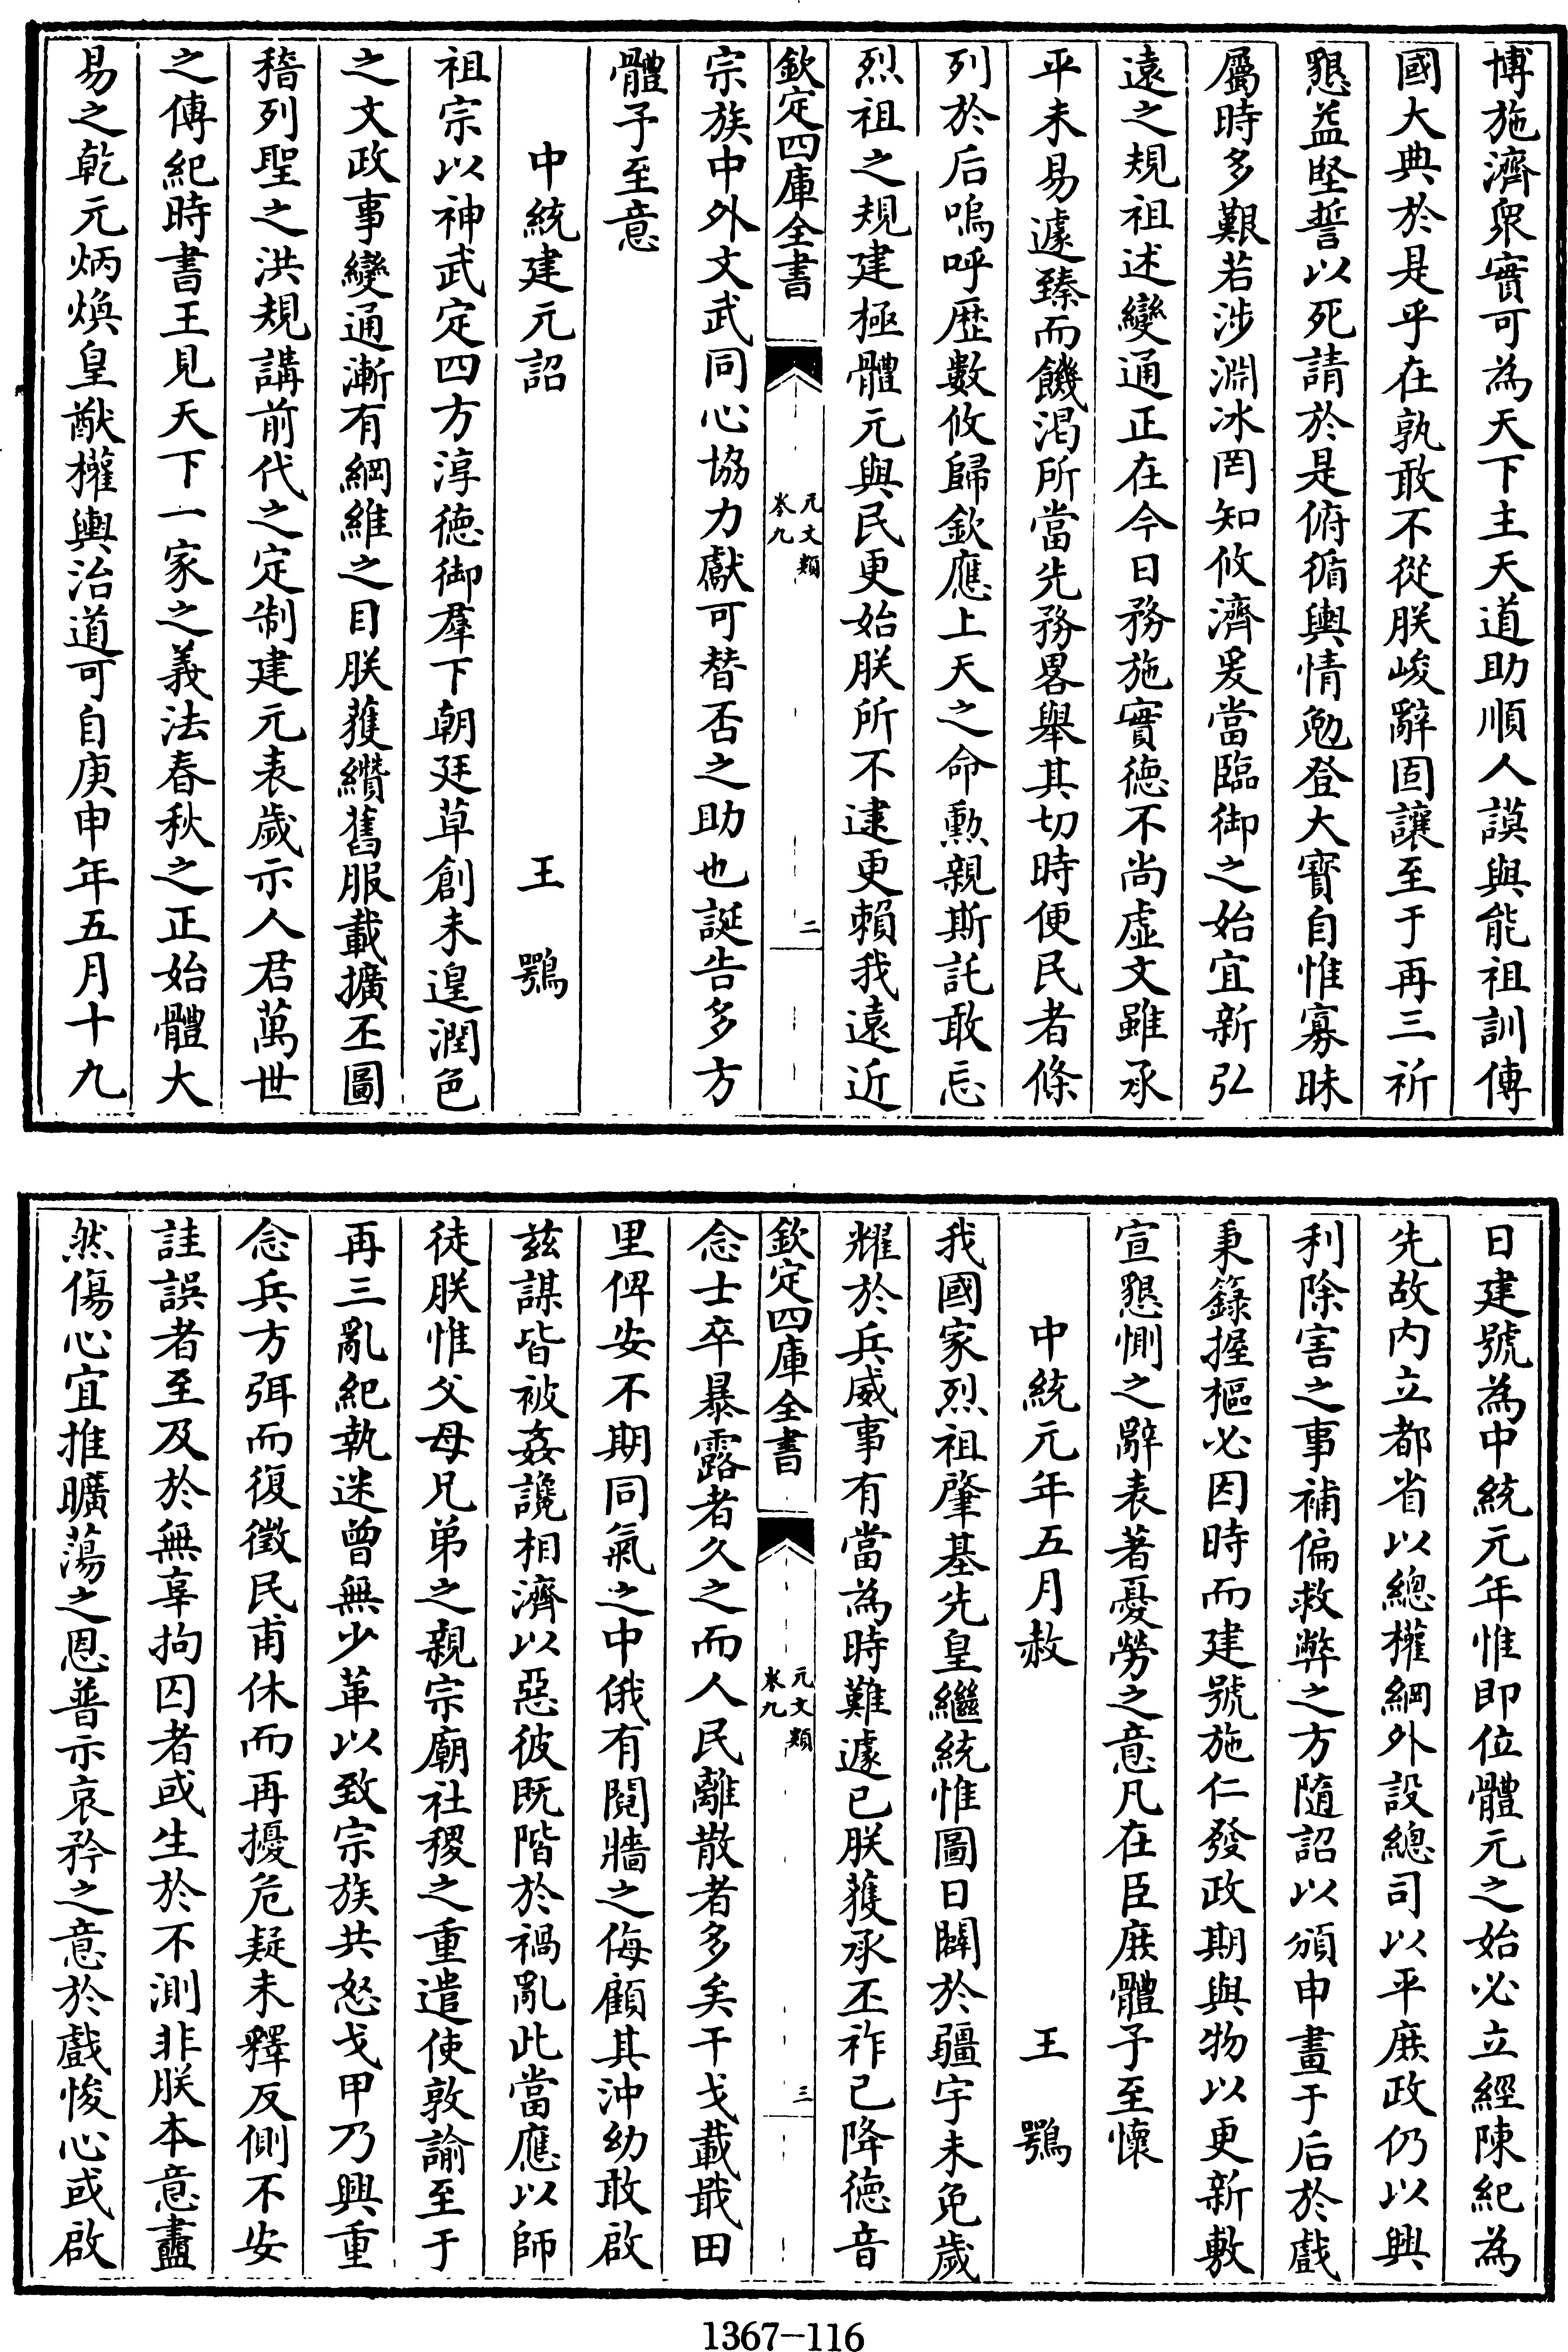 博施濟衆實可為天下主天道助順人謨與能祖訓傳
國大典於是乎在孰敢不從朕峻辭固讓至于再三祈
懇益堅誓以死請於是俯循輿情勉登大寳自惟寡昧
屬時多艱若涉淵冰罔知攸濟爰當臨御之始宜新弘
遠之規祖述變通正在今日務施實德不尚虚文雖承
平未易遽臻而饑渇所當先務畧舉其切時便民者條
列於后嗚呼歴數攸歸欽應上天之命勲親斯託敢忘
烈祖之規建極體元與民更始朕所不逮更賴我遠近
欽定四庫全書
元文類
卷九
二
宗族中外文武同心協力獻可替否之助也誕告多方
體予至意
中統建元詔 王鶚
祖宗以神武定四方淳德御羣下朝廷草創未遑潤色
之文政事變通漸有綱維之目朕獲纘舊服載擴丕圖
稽列聖之洪規講前代之定制建元表歲示人君萬世
之傳紀時書王見天下一家之義法春秋之正始體大
易之乾元炳煥皇猷權輿治道可自庚申年五月十九
日建號為中統元年惟即位體元之始必立經陳紀為
先故内立都省以總權綱外設總司以平庶政仍以興
利除害之事補偏救弊之方隨詔以頒申畫于后於戲
秉籙握樞必因時而建號施仁發政期與物以更新敷
宣懇惻之辭表著憂勞之意凡在臣庶體予至懷
中統元年五月赦 王鶚
我國家烈祖肇基先皇繼統惟圖日闢於疆宇未免歲
耀於兵威事有當為時難遽已朕獲承丕祚已降德音
欽定四庫全書
元文類
卷九
三
念士卒暴露者久之而人民離散者多矣干戈載戢田
里俾安不期同氣之中俄有鬩牆之侮顧其沖幼敢啟
兹謀皆被姦讒相濟以惡彼既階於禍亂此當應以師
徒朕惟父母兄弟之親宗廟社稷之重遣使敦諭至于
再三亂紀執迷曾無少革以致宗族共怒戈甲乃興重
念兵方弭而復徵民甫休而再擾危疑未釋反側不安
詿誤者至及於無辜拘囚者或生於不測非朕本意盡
然傷心宜推曠蕩之恩普示哀矜之意於戲悛心或啟
1367-116